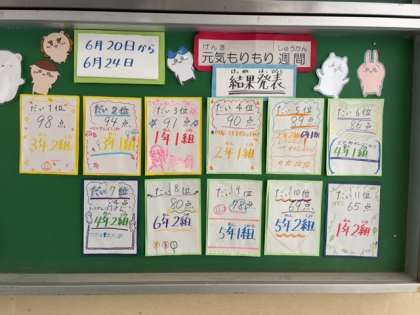 6月20日から
6月24日
げんき しゅうかん
元気もりもり週間
けっか はっぴょう
結果発表
だい1位
98点
3年2組
だい2位
94点
3年1組
だい3位
91点
1年1組
だい4位
90点
2年1組
だい5位
89点
だい6位
4年1組
だい7位
4年2組
だい8位
80点
6年2組
だい9位
78点
5年1組
だい10位
5年2組
だい11位
65点
1年2組